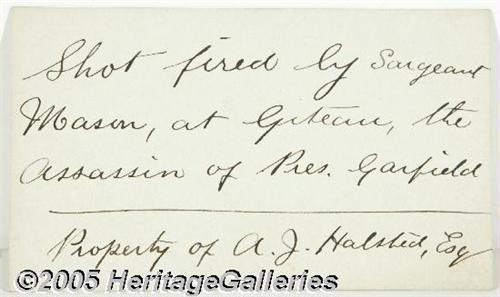 Shot fired by Sargeant
Mason, at Giteau, the
Assassin of Pres. Garfield
Property of A. J. Halsted, Esq
©2005 HeritageGalleries